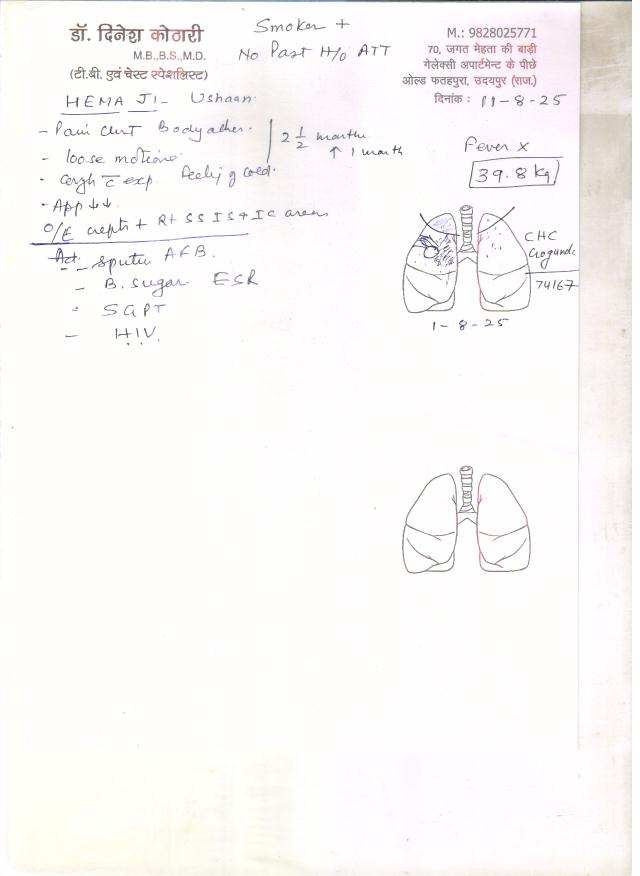 डॉ. दिनेश कोठारी
M.B.,B.S.,M.D.
(टी.बी. एवं चेस्ट स्पेशलिस्ट)
Smoker +
No Past H/o ATT
M.: 9828025771
70, जगत मेहता की बाड़ी
गेलेक्सी अपार्टमेन्ट के पीछे
ओल्ड फतहपुरा, उदयपुर (राज.)
दिनांक : 11-8-25
HEMA JI - Ushaan
- Pain chest Bodyaches.
- loose motions.
- cough c̄ exp. feeling cold.
- App ↓↓
2 1/2 months
↑ 1 month
Fever x
39.8 kg
O/E crepts + Rt SS IS + IC areas
Ad. - Sputum AFB.
- B. Sugar ESR
- SGPT
- HIV.
CHC
Gogunda
74167
1-8-25